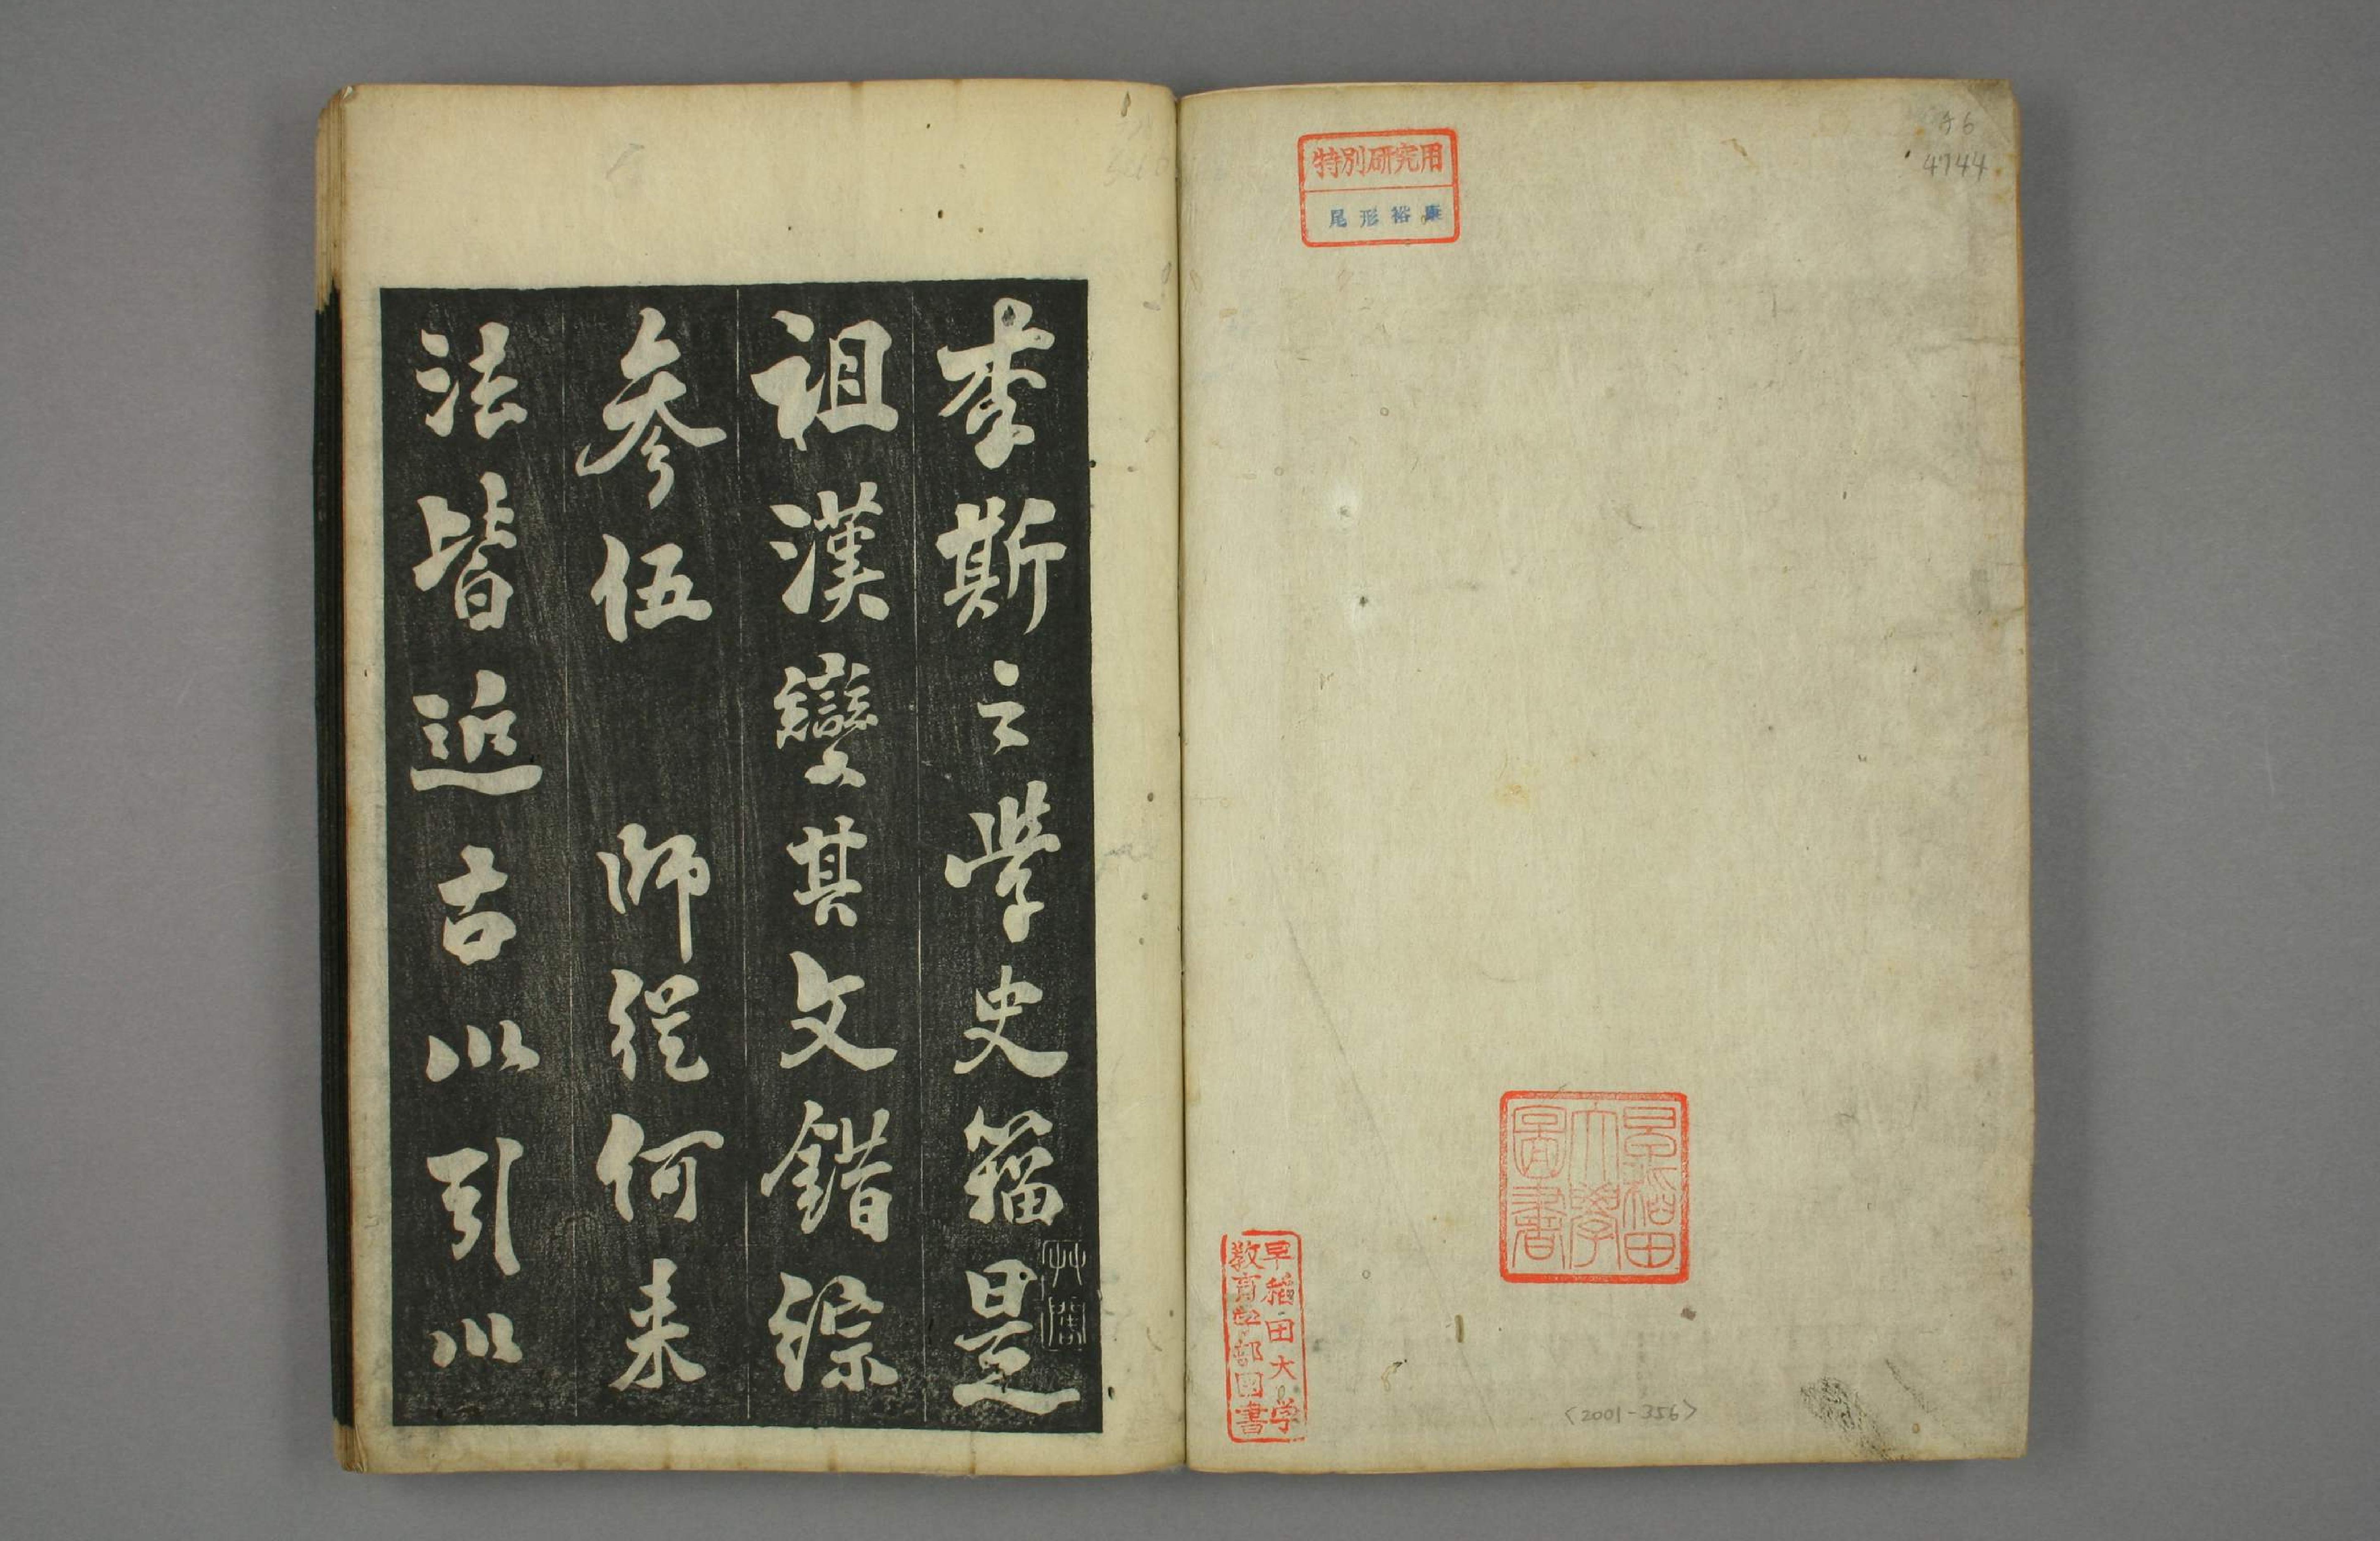 特別研究用
尾形裕康
46
4744
早稲田
大學
圖書
早稲田大学
教育学部図書
<2001-356>
李斯之學史籀是
祖漢變其文錯綜
參伍 師從何来
法皆近古以引以